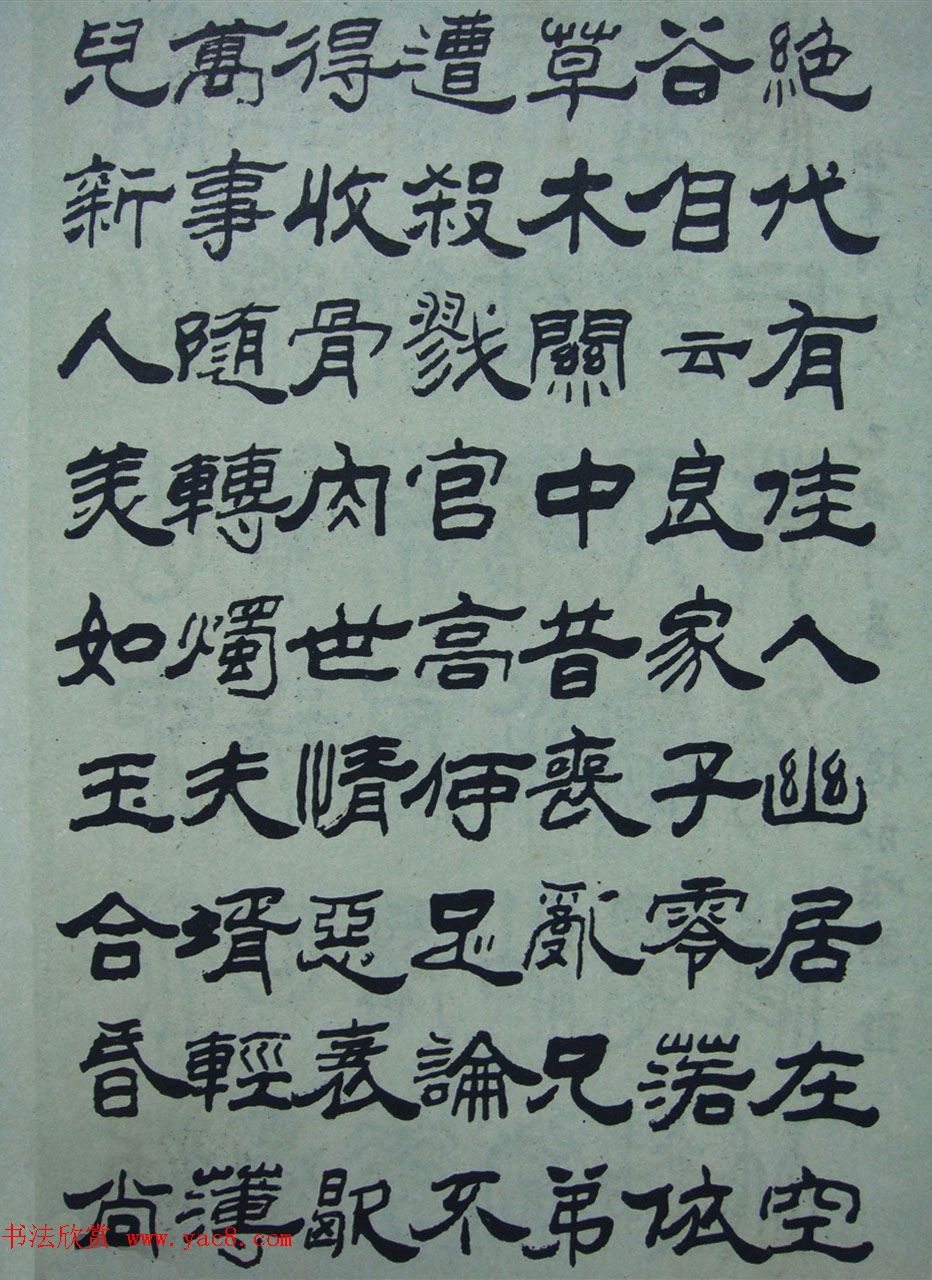 絶代有佳人幽居在空
谷自云良家子零落依
草木關中昔喪亂兄弟
遭殺戮官高何足論不
得收骨肉世情惡衰歇
萬事隨轉燭夫壻輕薄
兒新人美如玉合昏尚
书法欣赏 www.yac8.com